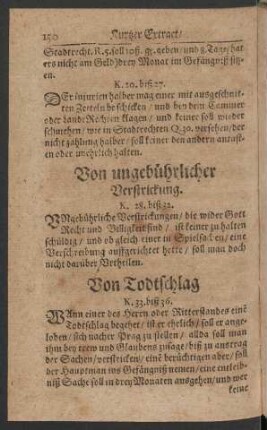 150 Kurtzer Extract/
Stadtrecht. K. 5. soll 10ß. gr. geben/ und 2. Tag/ hat
ers nicht am Geld) drey Monat im Gefängniß sitz-
en.
K. 20. biß 27.
DEr injurien halber mag einer mit ausgeschnit-
ten Zetteln beschicken / und bey dem Cammer
oder Lande Rechten klagen / und keiner soll wieder
schmehen/ wie in Stadtrechten Q. 30. versehen/ der
nicht zahlung halber / soll keiner den andern antast-
en oder unehrlich halten.
Von ungebührlicher
Verstrickung.
K. 28. biß 32.
UNgebührliche Verstrickungen/ die wider Gott
Recht und Billigkeit sind / ist kener zu halten
schüldig / und ob gleich einer in Spielsachen / eine
Verschreibung auffgerichtet hette / soll man doch
nicht darüber Vrtheilen.
Von Todtschlag
K. 33. biß 36.
WAnn einer des Herrn oder Ritterstandes einē
Todtschlag begehet / ist er ehrlich / soll er ange-
loben / sich nacher Prag zu stellen / allda soll man
ihm bey trew und Glaubens zusage / biß zu austrag
der Sachen / verstricken / eine berüchtigen aber / soll
der Hauptman ins Gefängnüß nemen / eine entleib-
niß Sache soll in drey Monaten ausgehen / und wer
keine